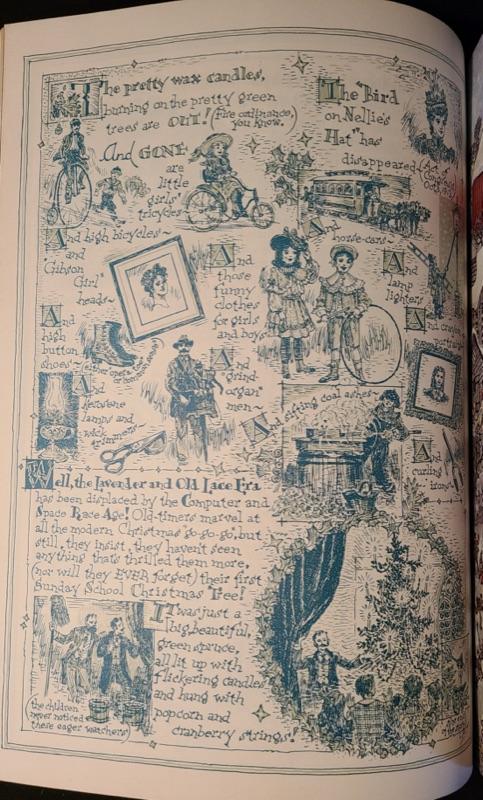 The pretty wax candles,
burning on the pretty green
trees are OUT! (Fire ordinance,
you know.)
And GONE
are
little
girls'
tricycles
The "Bird
on Nellie's
Hat" has
disappeared (Act of
And high bicycles~
and
"Gibson
Girl"
heads~
And
those
funny
clothes
for girls
and boys
And
horse-cars~
And
lamp
lighters
And
And
high
button
shoes~
And
"grind
organ"
men~
And
kerosene
lamps and
wick
trimmers~
And sifting coal ashes~
And
curling
irons
Well, the Lavender and Old Lace Era
has been displaced by the Computer and
Space Race Age! Old-timers marvel at
all the modern Christmas go-go-go, but
still, they insist, they haven't seen
anything that's thrilled them more,
(nor will they EVER forget) their first
Sunday School Christmas Tree!
It was just a
big, beautiful,
green spruce,
all lit up with
flickering candles
and hung with
popcorn and
cranberry strings!
(the children
never noticed
these eager watchers)